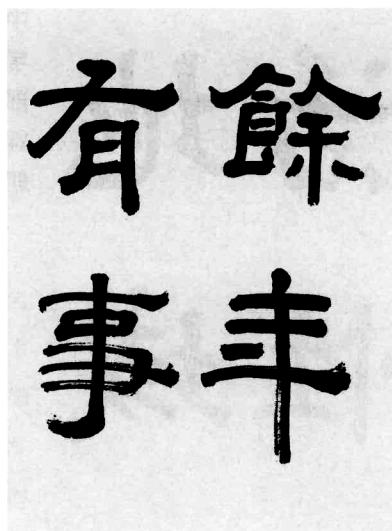 餘年
有事